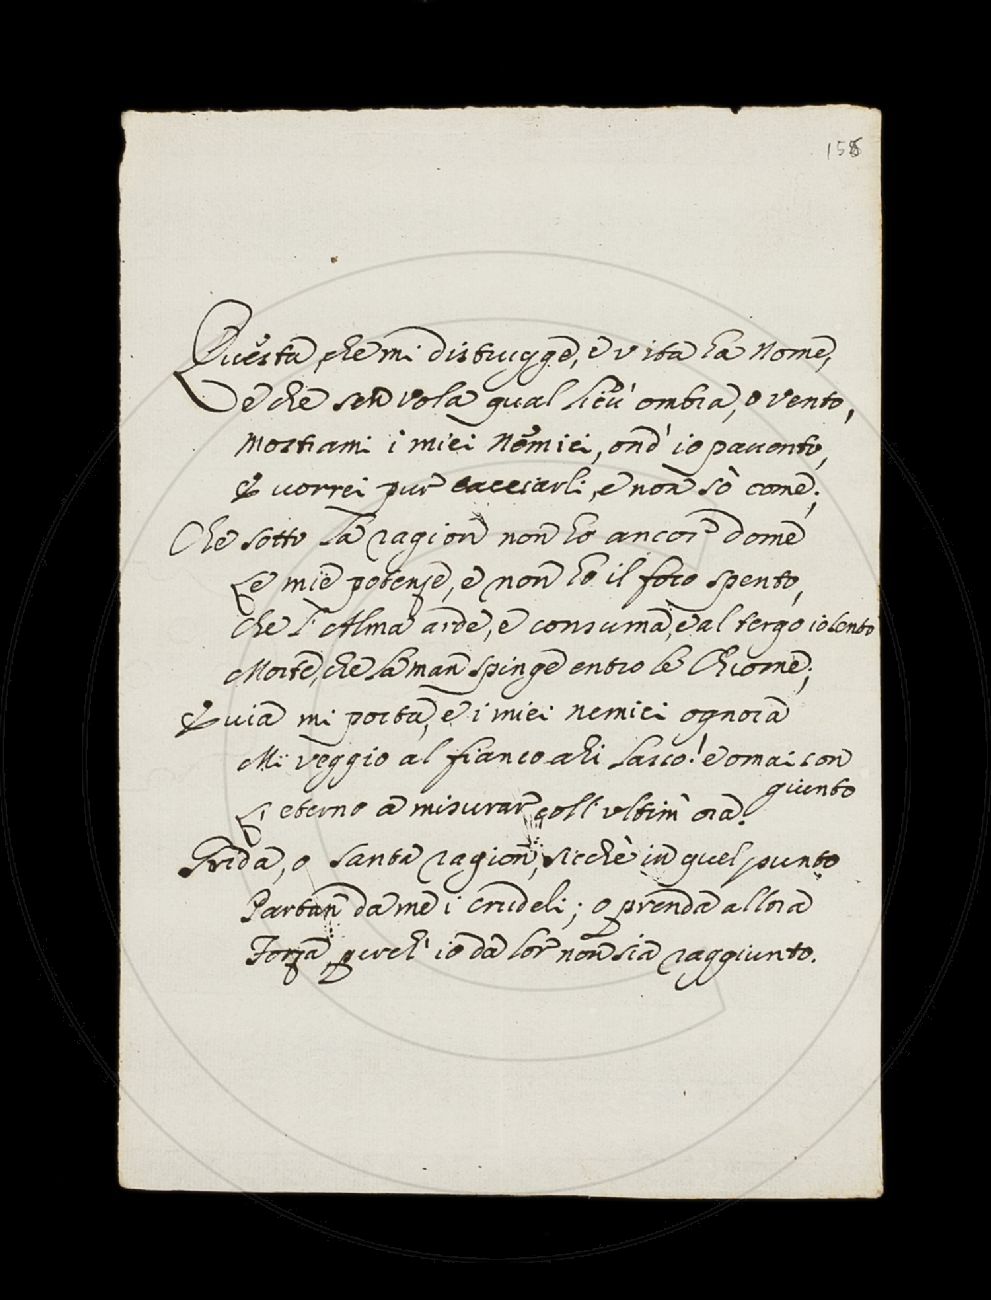 158
Questa, che mi distrugge, e vita ha Nome,
e che sen vola qual lieu' ombra, o vento,
Mostrami i miei Nemici, ond' io pavento,
E vorrei pur cacciarli, e non sò come;
Che sotto la ragion non ho ancor dome
Le mie potenze, e non ho il foco spento,
che l' Alma arde, e consuma, e al tergo io sento
Morte, che la man spinge entro le Chiome;
E via mi porta, e i miei nemici ognora
Mi veggio al fianco ahi lasso! e omai con
giunto
L' eterno a misurar coll' ultim' ora.
Grida, o santa ragion, sicchè in quel punto
Partan da me i Crudeli; o prenda allora
Forza, perch' io da lor non sia raggiunto.